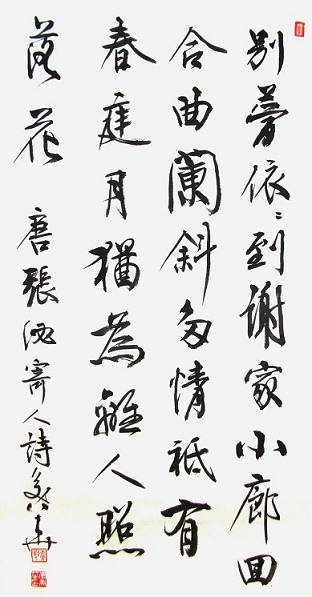 別夢依〻到謝家小廊回
合曲闌斜多情祗有
春庭月猶為離人照
落花 唐張泌寄人詩